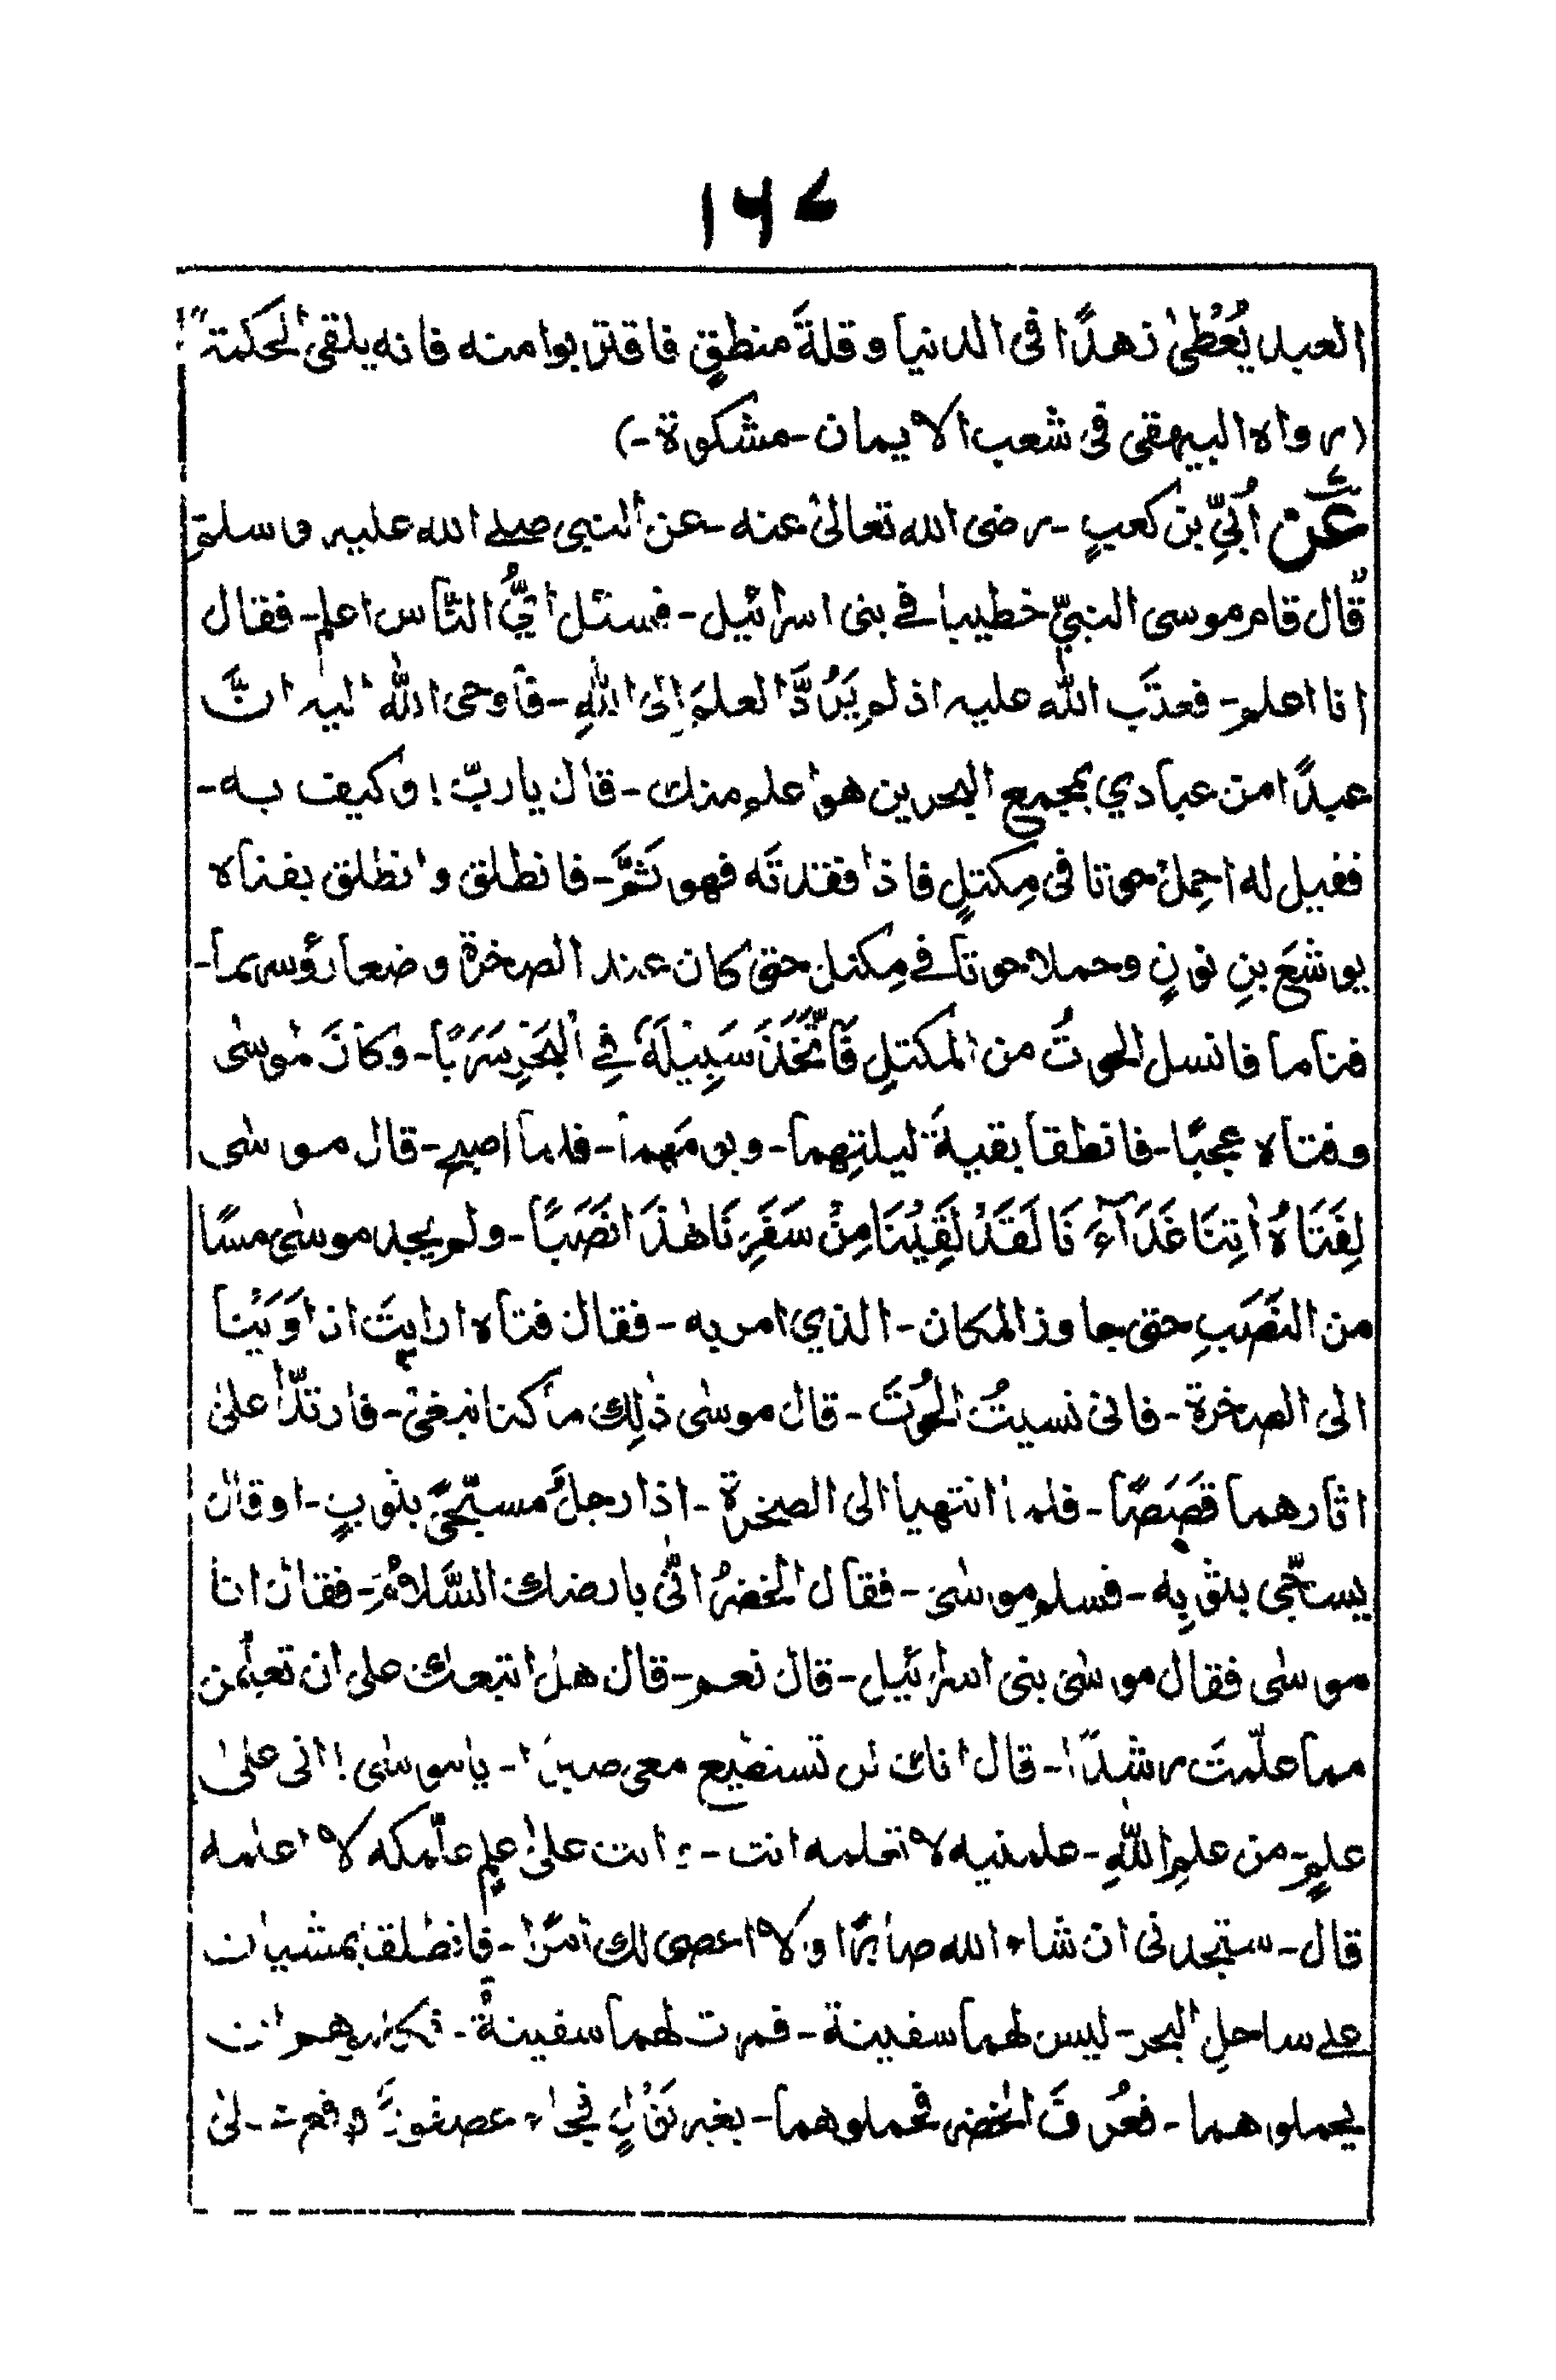 ۱۶۷
العبد يُعْطىٰ زهدًا فى الدنيا وقلةَ منطقٍ فاقتربوا منه فانه يلقى الحكمة"
(رواه البيهقى فى شعب الايمان - مشكوة -)
عَن اُبَيِّ بن كعبٍ - رضى الله تعالىٰ عنه - عن النبى صلے الله عليه وسلم
قال قام موسى النبيّ خطيبا فے بنى اسرائيل - فسئل ايُّ النّاس اعلم - فقال
انا اعلم - فعتَب الله عليه اذ لم يَرُدَّ العلمَ الى اللهِ - فاَوحى الله اليه انَّ
عبدًا من عبادي بمجمع البحرين هو اعلم منك - قال يا ربّ ! وكيف به -
فقيل له احمِلْ حوتا فى مِكتلٍ فاذا فقدتَه فهو ثَمَّ - فانطلق وانطلق بفتاه
يوشعَ بنِ نونٍ وحملا حوتاً فے مِكتل حتى كان عند الصخرة وضعا رؤسهما -
فناما فانسل الحوتُ من المكتلِ فَاتَّخَذَ سَبِيْلَهٗ فِي الْبَحْرِ سَرَبًا - وكانَ لموسٰى
وفتاه عجبًا - فانطقا بقيةَ ليلتِهما - ويومَهما - فلما اصبح - قال موسٰى
لِفَتَاهُ اٰتِنَا غَدَآءَ نَا لَقَدْ لَقِيْنَا مِنْ سَفَرِنَا هٰذَا نَصَبًا - ولم يجد موسٰى مسًا
من النَصَبِ حتى جاوز المكان - الذي امر به - فقال فتاه ارايتَ اذ اَوَيْنا
الى الصخرة - فانى نسيتُ الحُوْتَ - قال موسٰى ذٰلِك ما كنا نبغى - فارتدّا علىٰ
اثارهما قَصَصًا - فلما انتهيا الى الصخرة - اذا رجلٌ مسجّىً بثوبٍ - او قال
يسجّى بثوبِه - فسلم موسٰى - فقال الخضرُ انّٰى بارضك السَّلامُ - فقال انا
موسٰى فقال موسٰى بنى اسرائيل - قال نعم - قال هل اتبعك على ان تعلمن
مما علّمتَ رشدًا - قال انك لن تستطيع معى صبرًا - يا موسٰى ! انى علىٰ
علمٍ - من علمِ اللهِ - علمنيه لا تعلمه انت - و انت علىٰ علمٍ علّمكه لا اعلمه
قال - ستجدنى ان شاء الله صابرًا ولا اعصى لك امرًا - فانطلقا يمشيان
علے ساحلِ البحر - ليس لهما سفينة - فمرت لهما سفينةٌ - فكلماهم ان
يحملوهما - فعُرفَ الخضر فحملوهما - بغير نَوْلٍ فجاء عصفورٌ فوقع -